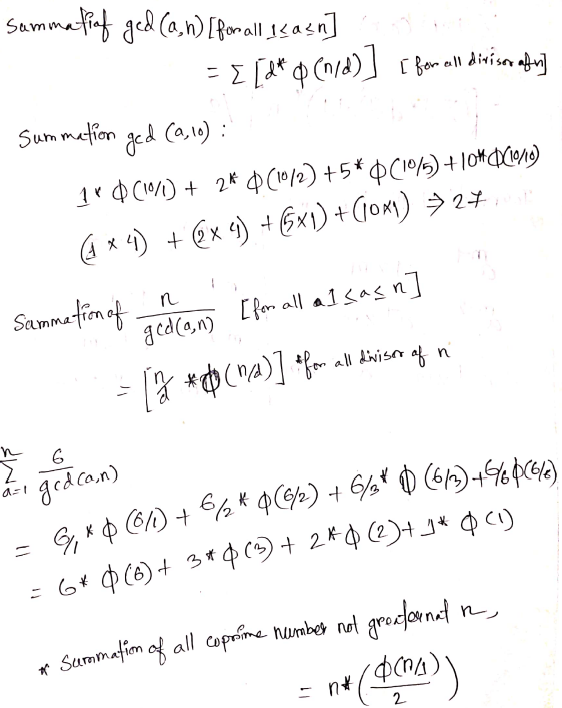 Summation of gcd (a,n) [for all 1≤a≤n]
= Σ [d* φ(n/d)] [for all divisor of n]
Summation gcd (a,10) :
1* φ(10/1) + 2* φ(10/2) + 5* φ(10/5) + 10* φ(10/10)
(1 × 4) + (2 × 4) + (5×1) + (10×1) ⇒ 27
Summation of n/gcd(a,n) [for all a 1≤a≤n]
= [n/d * φ(n/d)] *for all divisor of n
n Σ a=1 6/gcd(a,n)
= 6/1* φ(6/1) + 6/2* φ(6/2) + 6/3* φ(6/3) + 6/6 φ(6/6)
= 6* φ(6) + 3* φ(3) + 2* φ(2) + 1* φ(1)
* Summation of all coprime number not n,
= n* (φ(n/1)/2)